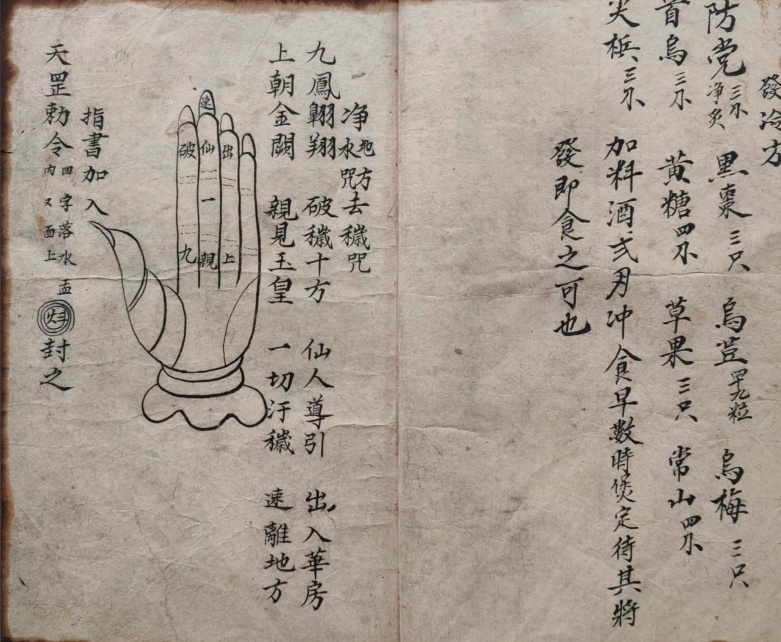 發冷方
防党三 净炙 黑棗三只 烏荳 九粒 烏梅三只
首烏三 黃糖四 草果三只 常山四
尖梹三 加料酒弍刃冲食早數時煲定待其將
發即食之可也
净水咒地方去穢咒
九鳳翺翔 破穢十方 仙人導引 出入華房
上朝金闕 親見玉皇 一切汙穢 速離地方
速
出 仙 破
一
上 親 九
指書加入
天罡勅令 四字落水盂 内又面上 封之